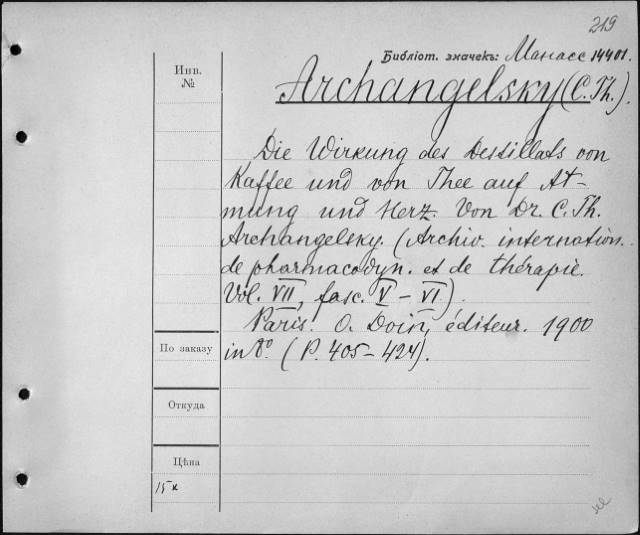 219
Библіот. значекъ: Манасс 14401.
Инв.
№
Archangelsky (C. Th.).
Die Wirkung des Destillats von
Kaffee und von Thee auf At-
mung und Herz. Von Dr. C. Th.
Archangelsky. (Archiv. internation.
de pharmacodyn. et de thérapie.
Vol. VII, fasc. V – VI).
Paris. O. Doin, éditeur. 1900
in 8º. (P. 405–424).
По заказу
Откуда
Цѣна
15 к